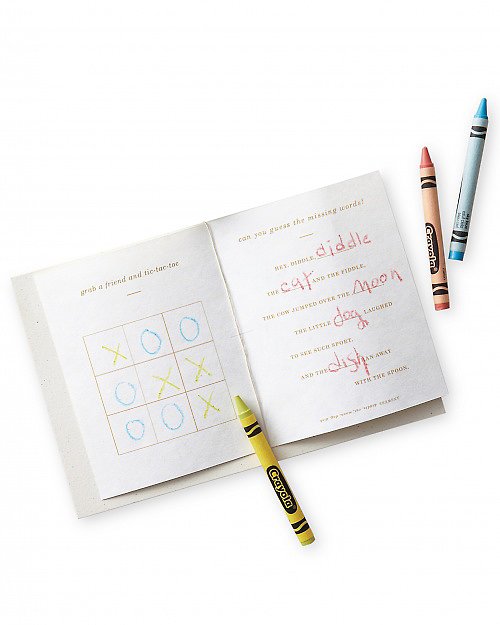 grab a friend and tic-tac-toe
X O O
O X X
O O X
can you guess the missing words?
HEY, DIDDLE, diddle
THE cat AND THE FIDDLE,
THE COW JUMPED OVER THE moon
THE LITTLE dog LAUGHED
TO SEE SUCH SPORT,
AND THE dish RAN AWAY
WITH THE SPOON.
Crayola
Crayola